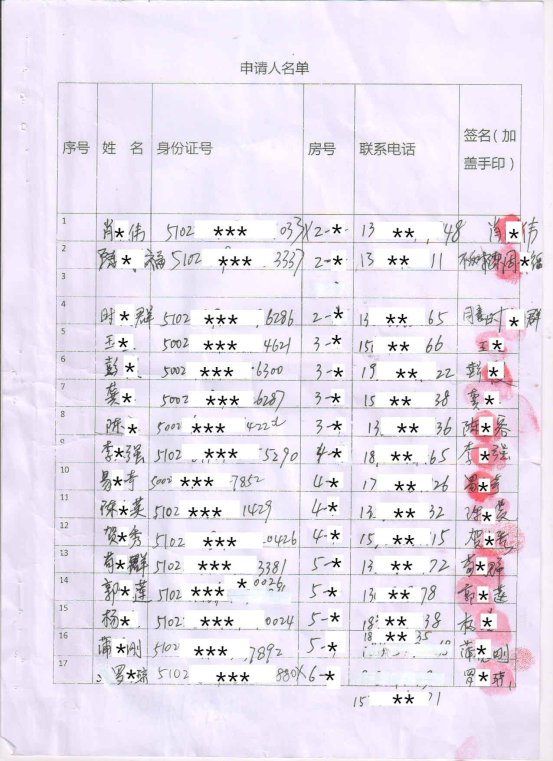 申请人名单
序号 姓 名 身份证号 房号 联系电话 签名（加盖手印）
1 肖*伟 5102 *** 037X 2-* 13 ** 48 肖*伟
2 *福 5102 *** 3337 2-* 13 ** 11 周*福
3
4 时*群 5102 *** 6286 2-* 13 ** 65 时*群
5 王* 5002 *** 4621 3-* 151 ** 66 王*
6 彭* 5002 *** 6300 3-* 19 ** 22 彭*
7 龚* 5002 *** 6287 3-* 15 ** 38 龚*
8 陈* 5002 *** 422 3-* 13 ** 36 陈*容
9 李*强 5102 *** 5290 4-* 18 ** 65 李*强
10 易*奇 5002 *** 7852 4-* 17 ** 26 易*奇
11 陈*英 5102 *** 1429 4-* 13 ** 32 陈*英
12 贺*秀 5102 *** 0426 4-* 15 ** 15 贺*秀
13 苟*群 5102 *** 3381 5-* 13 ** 72 苟*群
14 郭*莲 5102 *** *0026 5-* 13 ** 78 郭*莲
15 杨* 5102 *** 0024 5-* 18 ** 38 杨*
16 蒲*刚 5102 *** 7892 5-* 18 ** 35 蒲*刚
17 罗*琼 5102 *** 880X 6-* 罗*琼
15 ** 71